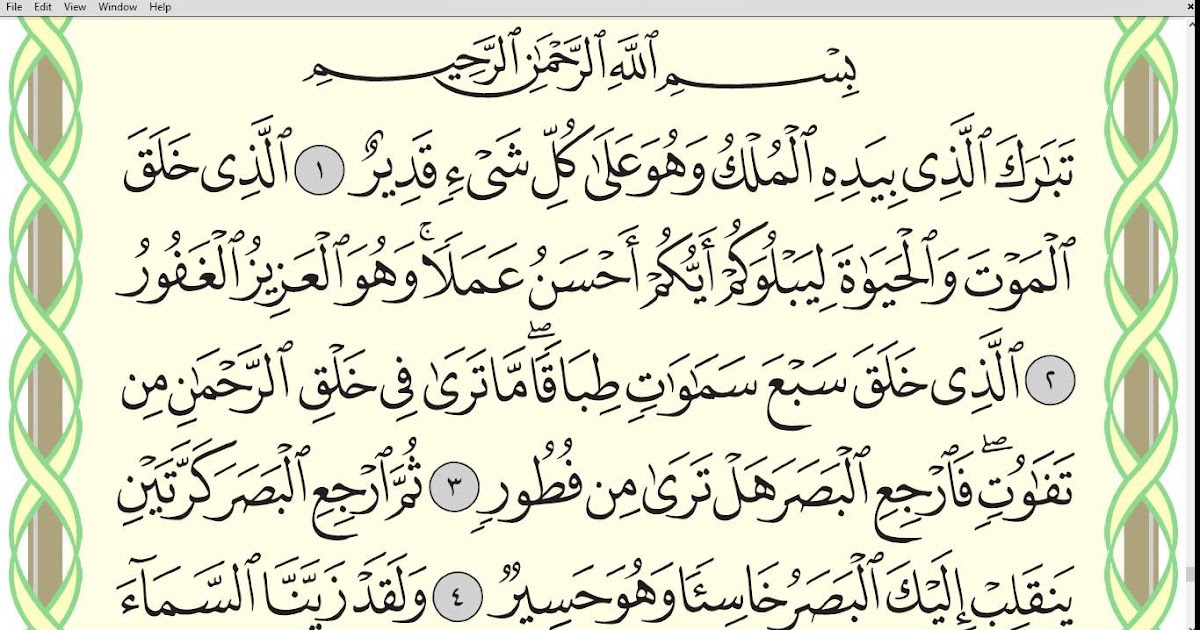 File Edit View Window Help
بِسْمِ ٱللَّهِ ٱلرَّحْمَٰنِ ٱلرَّحِيمِ
تَبَٰرَكَ ٱلَّذِى بِيَدِهِ ٱلْمُلْكُ وَهُوَ عَلَىٰ كُلِّ شَىْءٍ قَدِيرٌ ١ ٱلَّذِى خَلَقَ
ٱلْمَوْتَ وَٱلْحَيَوٰةَ لِيَبْلُوَكُمْ أَيُّكُمْ أَحْسَنُ عَمَلًا ۚ وَهُوَ ٱلْعَزِيزُ ٱلْغَفُورُ
٢ ٱلَّذِى خَلَقَ سَبْعَ سَمَٰوَٰتٍ طِبَاقًا ۖ مَّا تَرَىٰ فِى خَلْقِ ٱلرَّحْمَٰنِ مِن
تَفَٰوُتٍ ۖ فَٱرْجِعِ ٱلْبَصَرَ هَلْ تَرَىٰ مِن فُطُورٍ ٣ ثُمَّ ٱرْجِعِ ٱلْبَصَرَ كَرَّتَيْنِ
يَنقَلِبْ إِلَيْكَ ٱلْبَصَرُ خَاسِئًا وَهُوَ حَسِيرٌ ٤ وَلَقَدْ زَيَّنَّا ٱلسَّمَآءَ